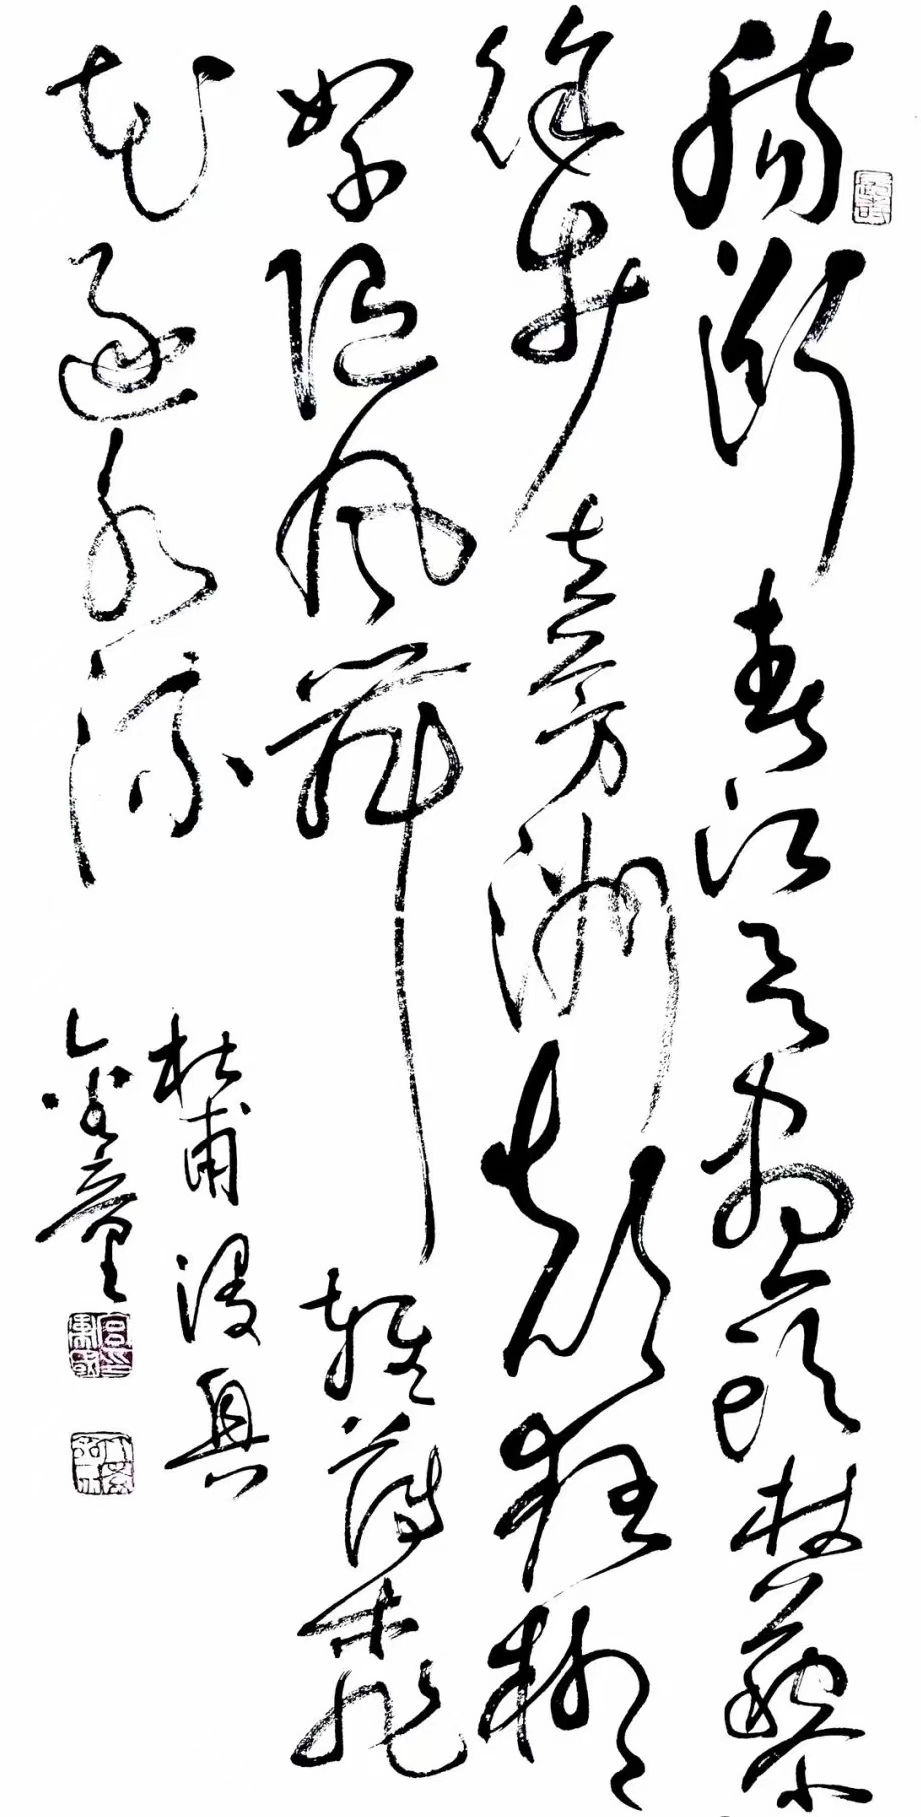 腸斷春江欲盡頭杖藜
徐步立芳洲顛狂柳
絮隨風舞輕薄桃
花逐水流
杜甫漫興